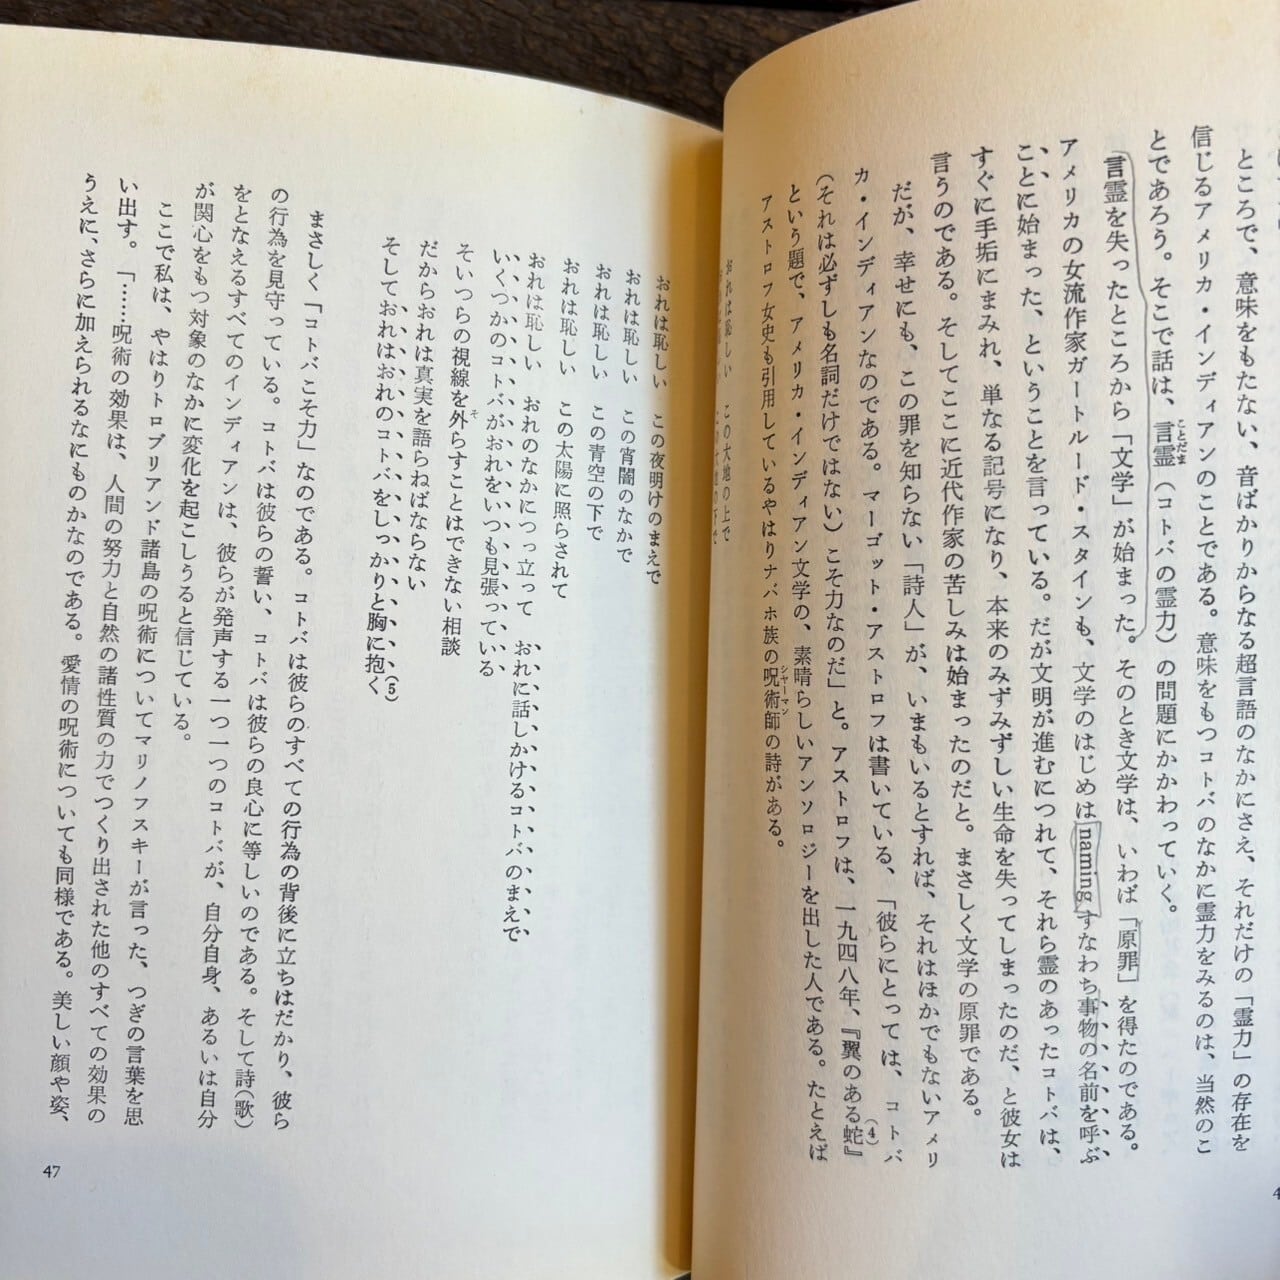 ところで、意味をもたない、音ばかりからなる超言語のなかにさえ、それだけの「霊力」の存在を
信じるアメリカ・インディアンのことである。意味をもつコトバのなかに霊力をみるのは、当然のこ
とであろう。そこで話は、言霊（コトバの霊力）の問題にかかわっていく。
ことだま
言霊を失ったところから「文学」が始まった。そのとき文学は、いわば「原罪」を得たのである。
アメリカの女流作家ガートルード・スタインも、文学のはじめは naming すなわち事物の名前を呼ぶ
ことに始まった、ということを言っている。だが文明が進むにつれて、それら霊のあったコトバは、
すぐに手垢にまみれ、単なる記号になり、本来のみずみずしい生命を失ってしまったのだ、と彼女は
言うのである。そしてここに近代作家の苦しみは始まったのだと。まさしく文学の原罪である。
だが、幸せにも、この罪を知らない「詩人」が、いまもいるとすれば、それはほかでもないアメリ
カ・インディアンなのである。マーゴット・アストロフは書いている、「彼らにとっては、コトバ
（それは必ずしも名詞だけではない）こそ力なのだ」と。アストロフは、一九四八年、『翼のある蛇』
(4)
という題で、アメリカ・インディアン文学の、素晴らしいアンソロジーを出した人である。たとえば
アストロフ女史も引用しているやはりナバホ族の呪術師の詩がある。
シャーマン
おれは恥しい　この大地の上で
おれは恥しい　この夜明けのまえで
おれは恥しい　この宵闇のなかで
おれは恥しい　この青空の下で
おれは恥しい　この太陽に照らされて
おれは恥しい　おれのなかにつっ立って　おれに話しかけるコトバのまえで
いくつかのコトバがおれをいつも見張っている
そいつらの視線を外らすことはできない相談
そ
だからおれは真実を語らねばならない
そしておれはおれのコトバをしっかりと胸に抱く(5)
まさしく「コトバこそ力」なのである。コトバは彼らのすべての行為の背後に立ちはだかり、彼ら
の行為を見守っている。コトバは彼らの誓い、コトバは彼らの良心に等しいのである。そして詩（歌）
をとなえるすべてのインディアンは、彼らが発声する一つ一つのコトバが、自分自身、あるいは自分
が関心をもつ対象のなかに変化を起こしうると信じている。
ここで私は、やはりトロブリアンド諸島の呪術についてマリノフスキーが言った、つぎの言葉を思
い出す。「……呪術の効果は、人間の努力と自然の諸性質の力でつくり出された他のすべての効果の
うえに、さらに加えられるなにものかなのである。愛情の呪術についても同様である。美しい顔や姿、
47